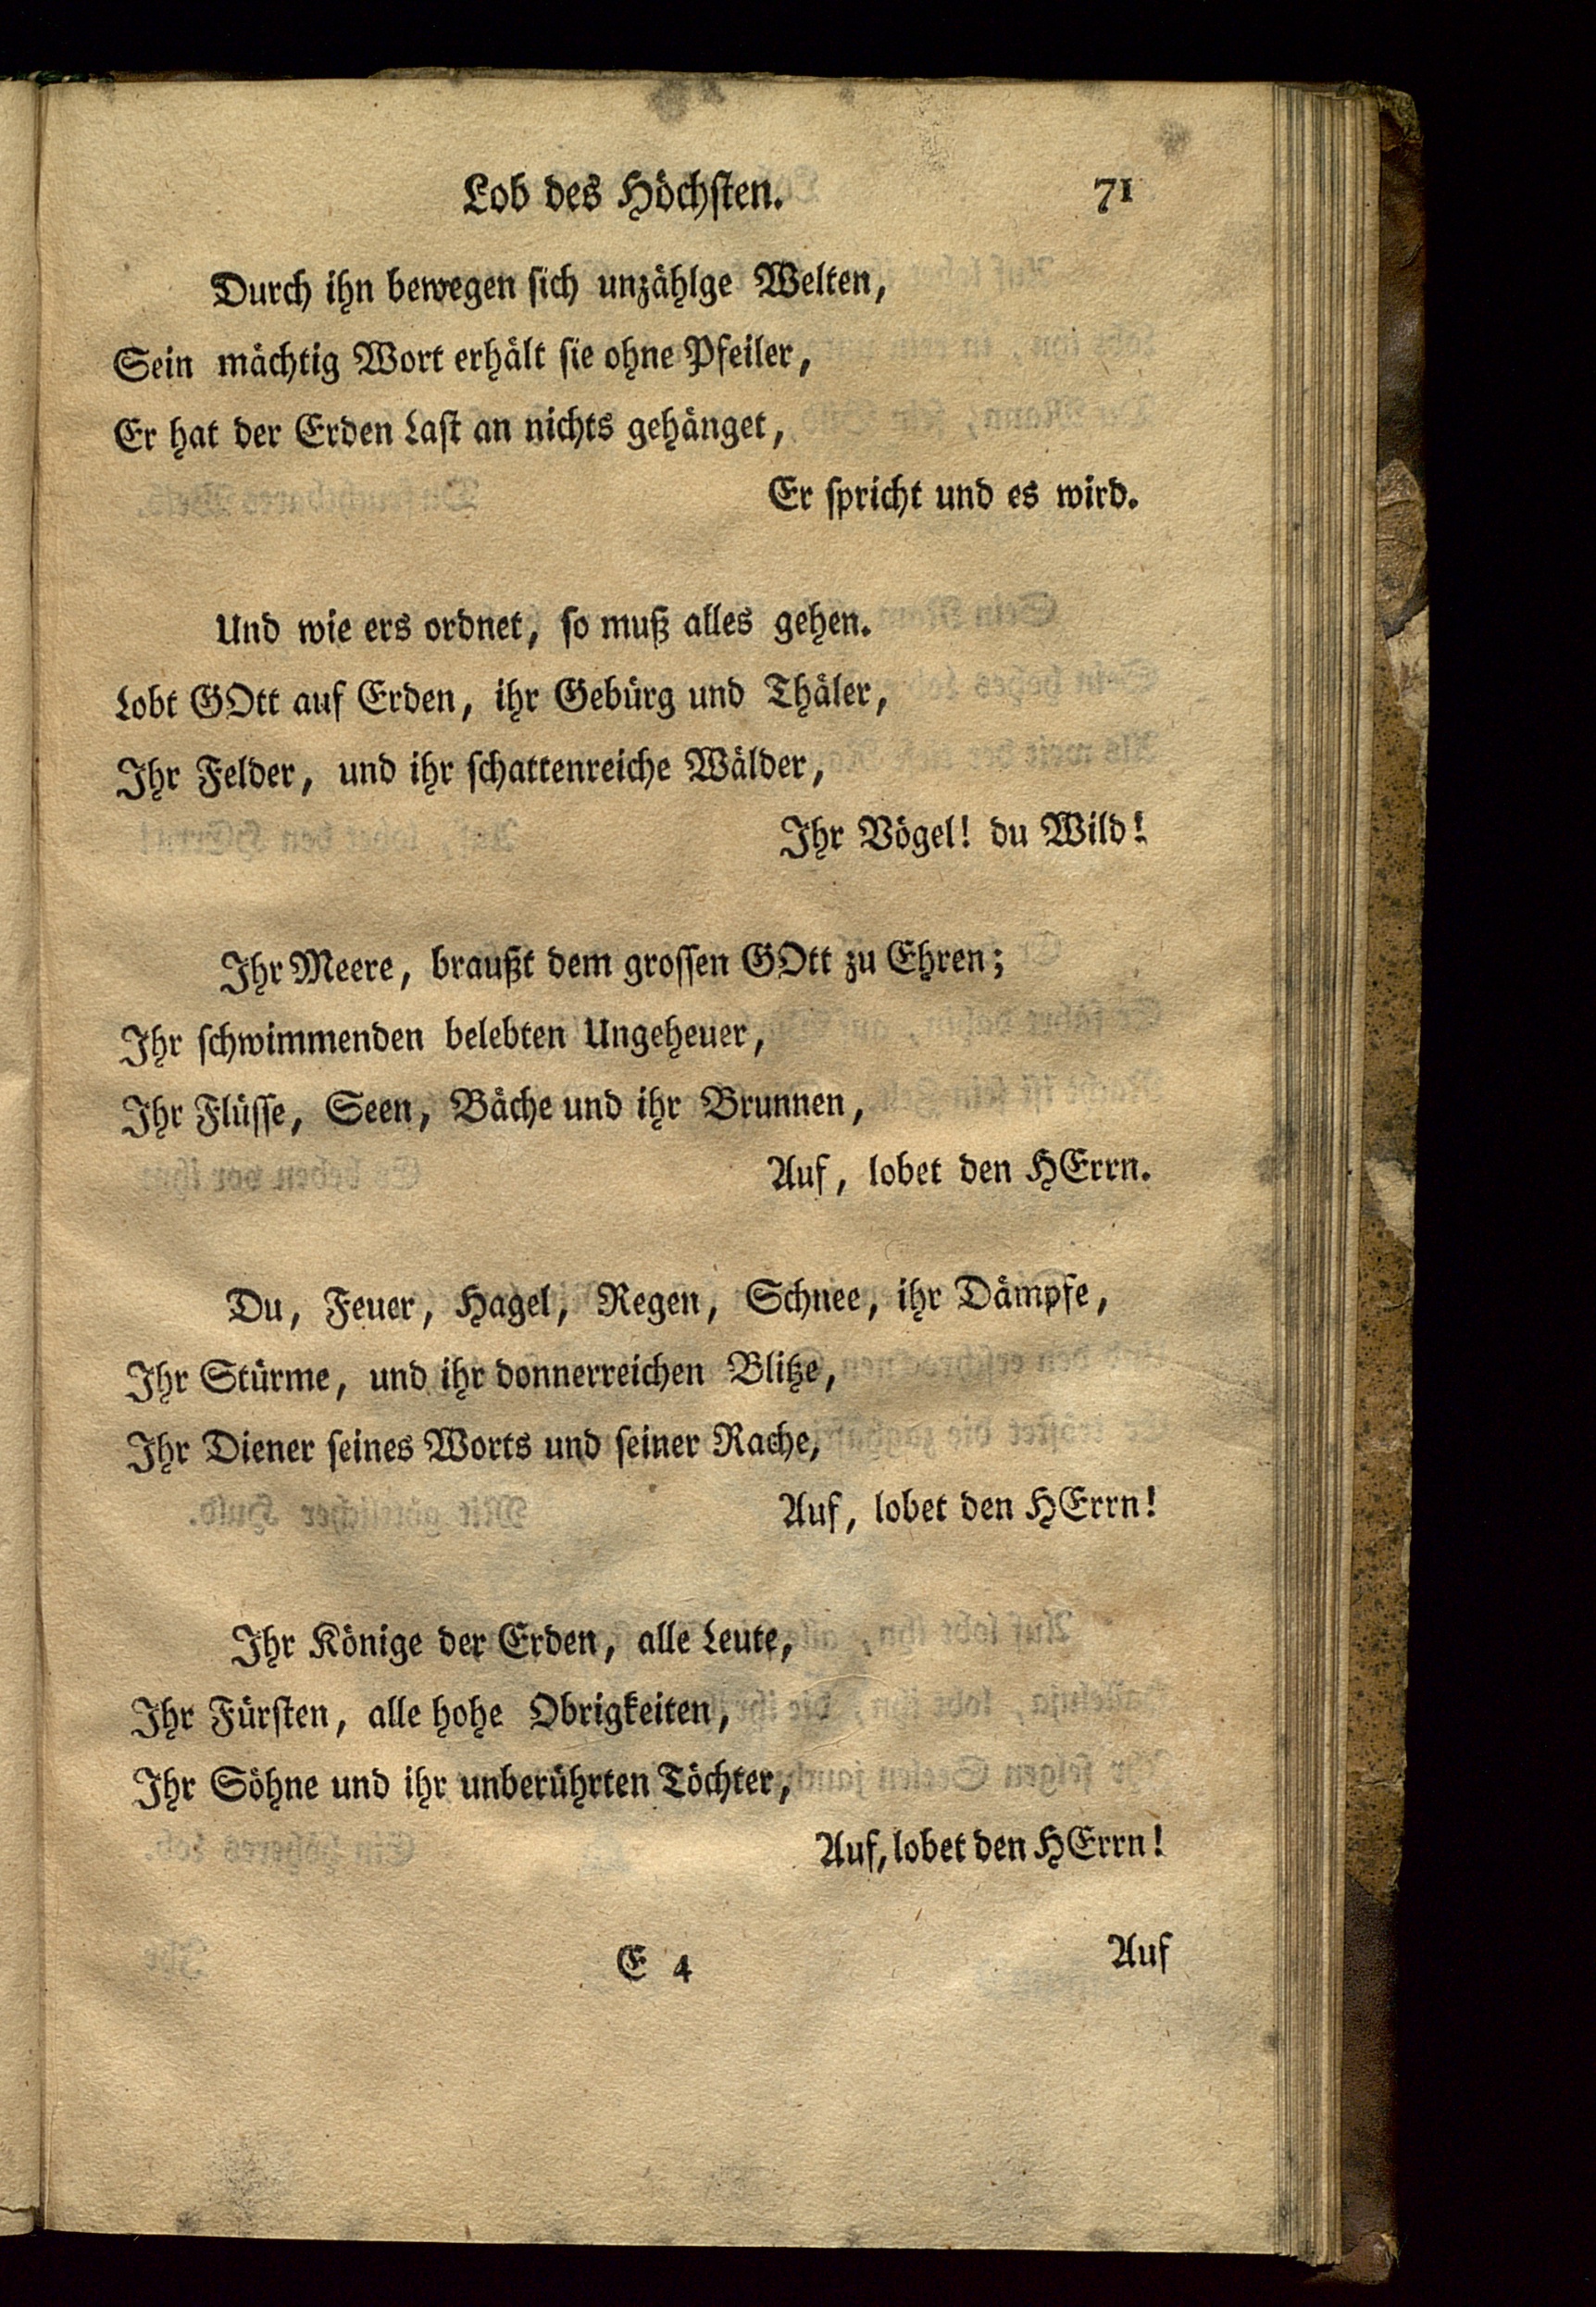 Lob des Höchsten. 71
Durch ihn bewegen sich unzählge Welten,
Sein mächtig Wort erhält sie ohne Pfeiler,
Er hat der Erden Last an nichts gehänget,
Er spricht und es wird.
Und wie ers ordnet, so muß alles gehen.
Lobt GOtt auf Erden, ihr Gebürg und Thäler,
Ihr Felder, und ihr schattenreiche Wälder,
Ihr Vögel! du Wild!
Ihr Meere, braußt dem grossen GOtt zu Ehren;
Ihr schwimmenden belebten Ungeheuer,
Ihr Flüsse, Seen, Bäche und ihr Brunnen,
Auf, lobet den HErrn.
Du, Feuer, Hagel, Regen, Schnee, ihr Dämpfe,
Ihr Stürme, und ihr donnerreichen Blitze,
Ihr Diener seines Worts und seiner Rache,
Auf, lobet den HErrn!
Ihr Könige der Erden, alle Leute,
Ihr Fürsten, alle hohe Obrigkeiten,
Ihr Söhne und ihr unberührten Töchter,
Auf, lobet den HErrn!
E 4 Auf